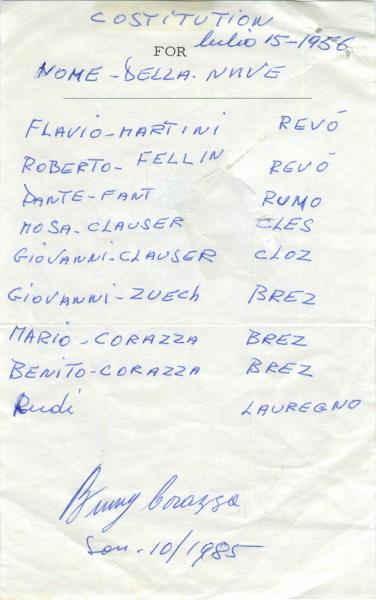 COSTITUTION
FOR Lulio 15-1956
NOME-DELLA-NAVE
FLAVIO-MARTINI REVÓ
ROBERTO-FELLIN REVÓ
DANTE-FANT RUMO
MOSA-CLAUSER CLES
GIOVANNI-CLAUSER CLOZ
GIOVANNI-ZUECH BREZ
MARIO-CORAZZA BREZ
BENITO-CORAZZA BREZ
Rudi LAUREGNO
Benny Corazza
10/1985